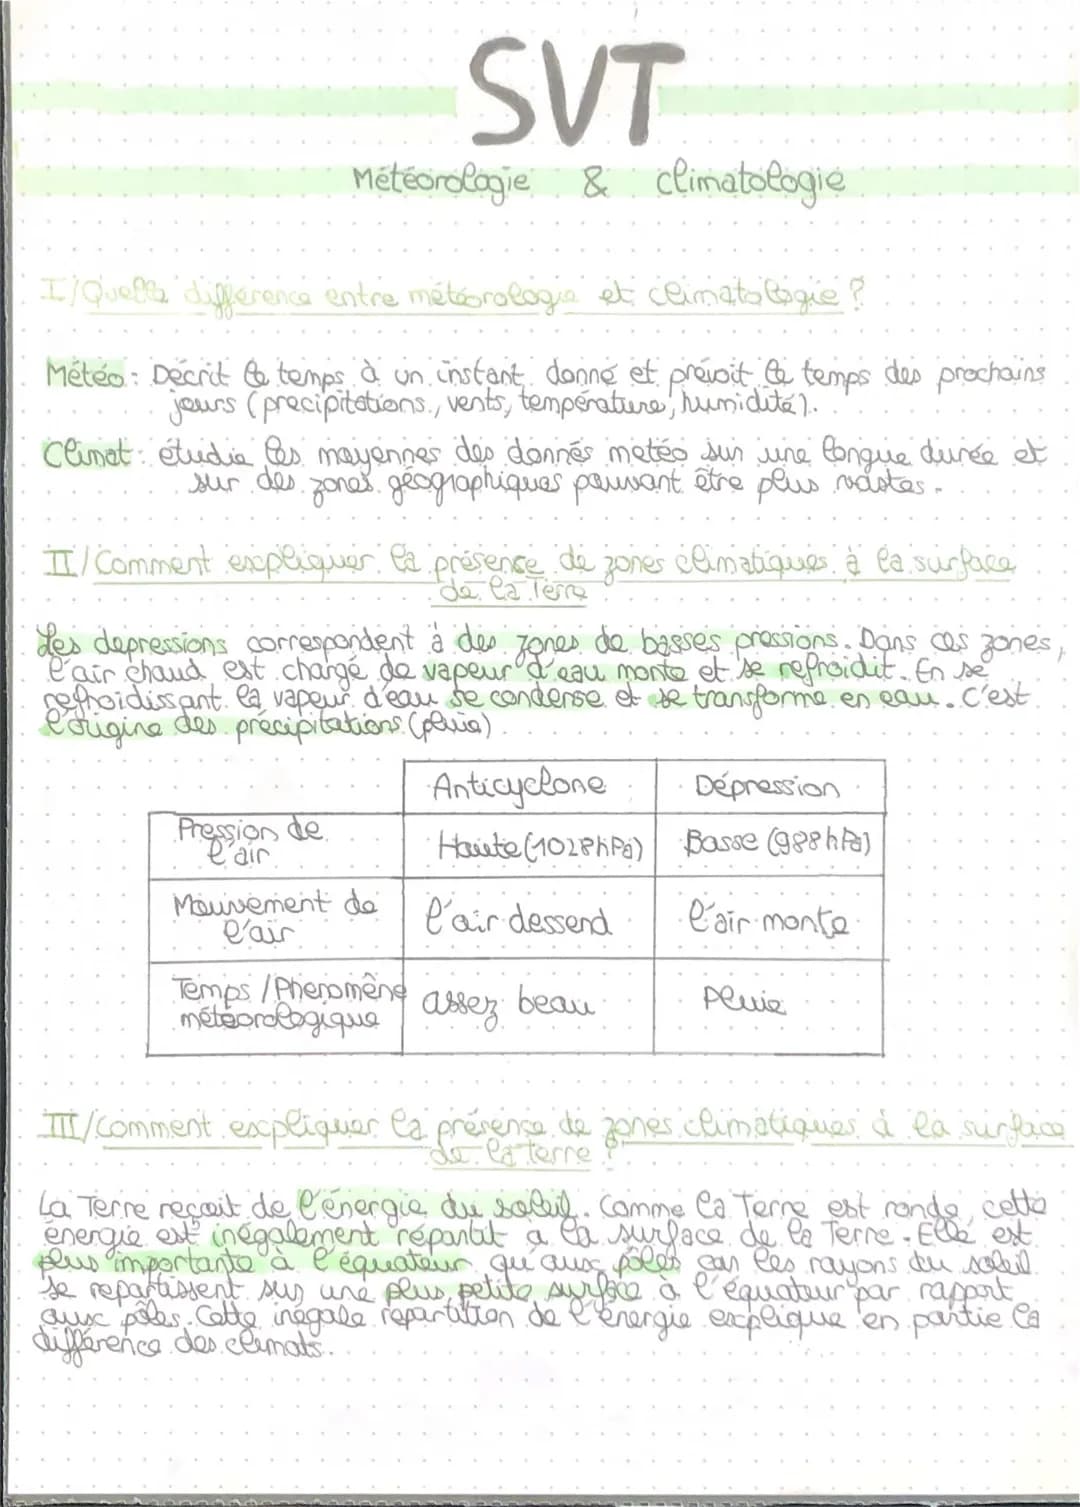 SVT
Météorologie & climatologie
I/Quelle différence entre météorologie et climatologie ?
Météo : Décrit le temps à un instant donné et prévoit le temps des prochains
jours (precipitations, vents, température, humidité).
Climat : étudie les moyennes des donnés metéo sur une longue durée et
sur des zones géographiques pouvant être plus vastes.
II/Comment expliquer la présence de zones climatiques à la surface
de la Terre
Les depressions correspondent à des zones de basses pressions. Dans ces zones,
l'air chaud est chargé de vapeur d'eau monte et se refroidit. En se
refroidissant la vapeur d'eau se condense et se transforme en eau. C'est
l'origine des précipitations (pluie)
Anticyclone Dépression
Pression de
l'air
Haute (1028hPa) Basse (988hPa)
Mouvement de
l'air
l'air dessend l'air monte
Temps /Phenomène
météorologique
assez beau Pluie
III/Comment expliquer la présence de zones climatiques à la surface
de la terre ?
La Terre reçoit de l'énergie du soleil. Comme la Terre est ronde, cette
énergie est inégalement répartit a la surface de la Terre. Elle est
plus importante à l'équateur qu'aux pôles car les rayons du soleil
se repartissent sur une plus petite surface à l'équateur par rapport
aux pôles. Cette inégale répartition de l'énergie explique en partie la
différence des climats.